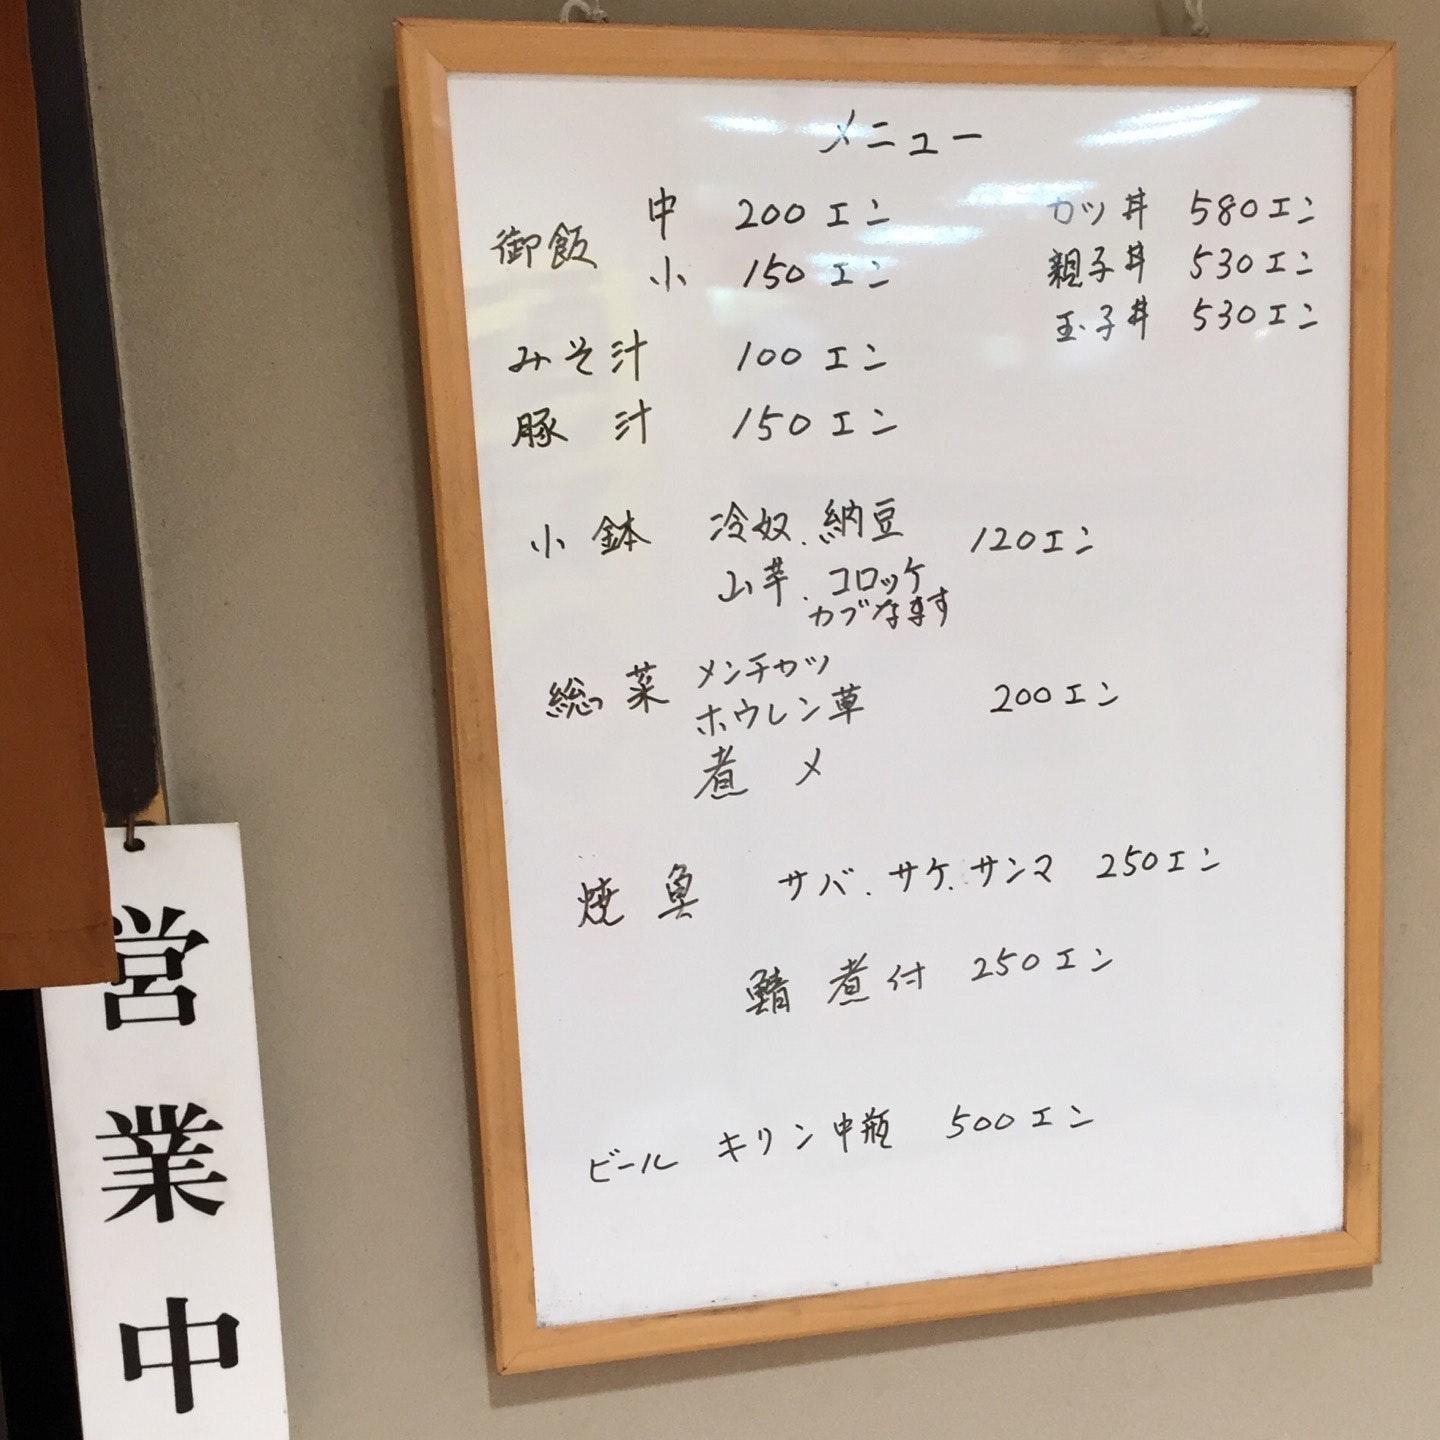 メニュー
御飯 中 200エン
小 150エン
みそ汁 100エン
豚汁 150エン
カツ丼 580エン
親子丼 530エン
玉子丼 530エン
小鉢 冷奴、納豆 120エン
山芋、コロッケ
カブなます
総菜 メンチカツ
ホウレン草 200エン
煮〆
焼魚 サバ、サケ、サンマ 250エン
鯖煮付 250エン
ビール キリン中瓶 500エン
営業中